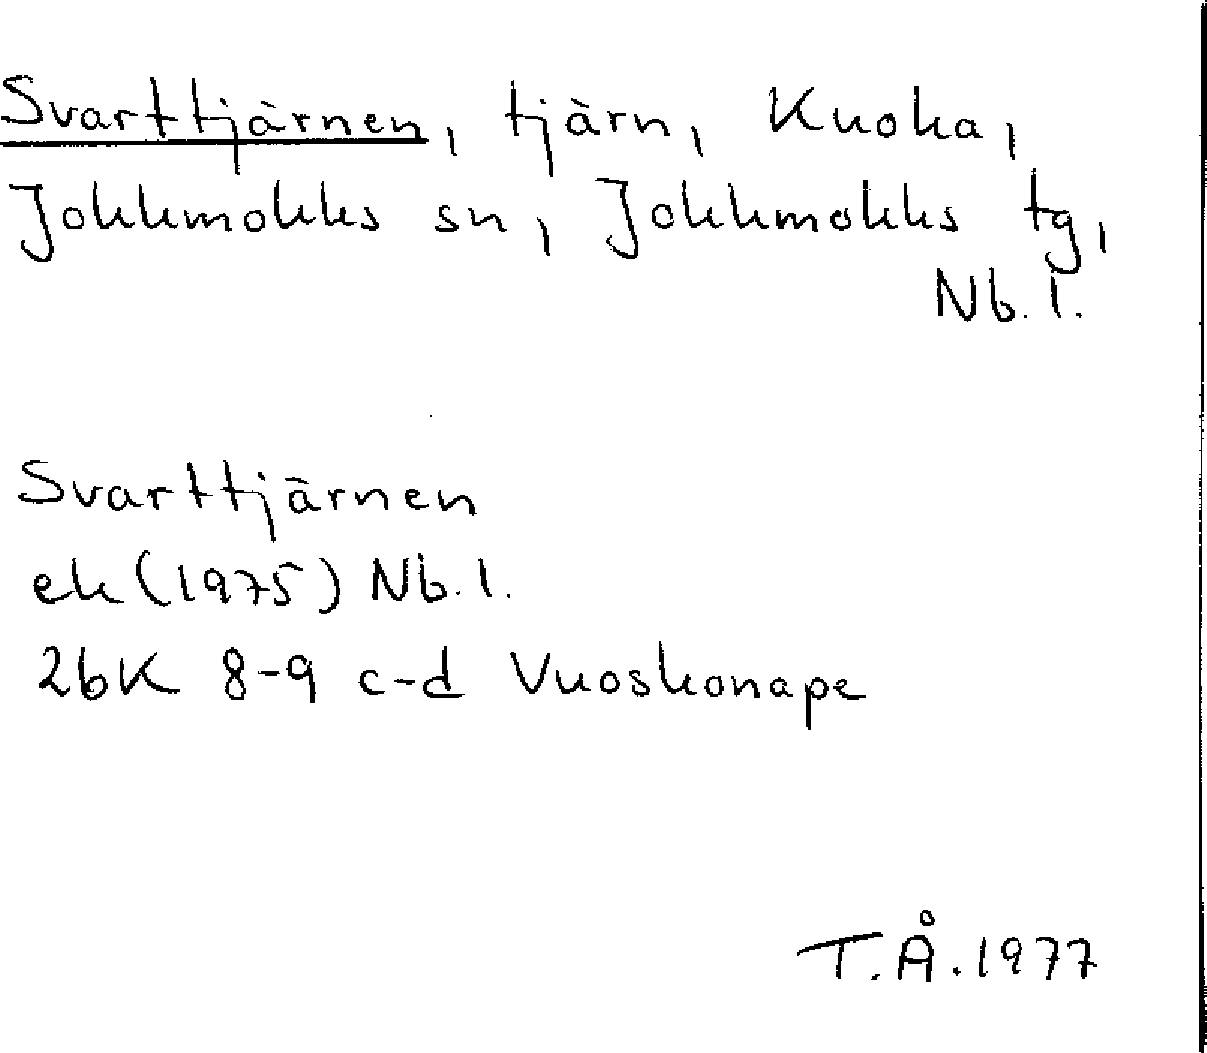 Svarttjärnen, tjärn, Kuoka,
Jokkmokks sn, Jokkmokks tg,
Nb. l.
Svarttjärnen
ek (1975) Nb. l.
26K 8-9 c-d Vuoskonape
T.Å. 1977